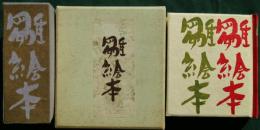 雛絵本
雛絵本
雛絵本
雛絵本